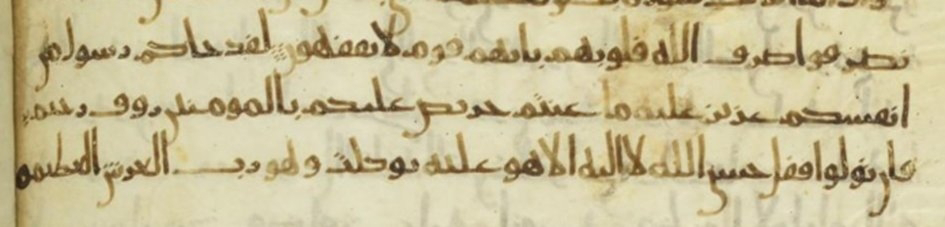 نصرفوا صرف الله قلوبهم بانهم قوم لا يفقهون لقد جاكم رسول من
انفسكم عزيز عليه ما عنتم حريص عليكم بالمومنين روف رحيم
فان تولوا فقل حسبي الله لا اله الا هو عليه توكلت وهو رب العرش العظيم